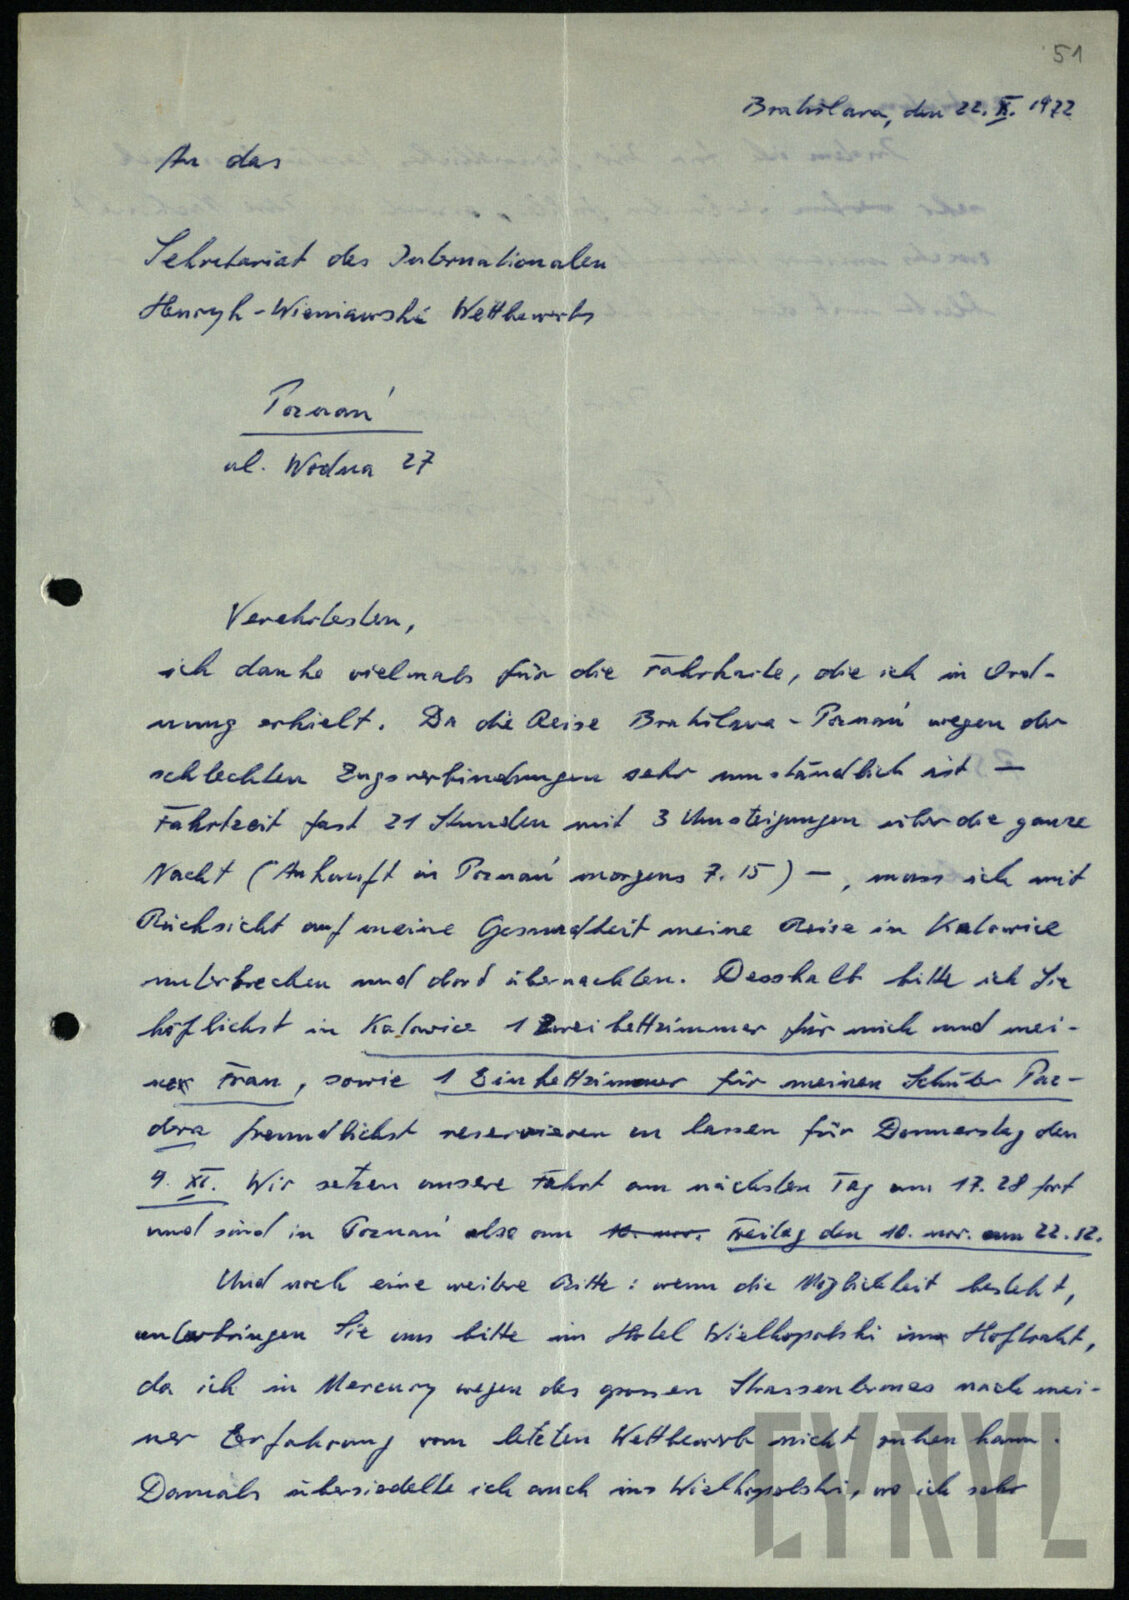 51
Bratislava, den 22. X. 1972
An das
Sekretariat des Internationalen
Henryk-Wieniawski Wettbewerbs
Poznań
ul. Wodna 27
Verehrtesten,
ich danke vielmals für die Fahrkarte, die ich in Ord-
nung erhielt. Da die Reise Bratislava - Poznań wegen der
schlechten Zugsverbindungen sehr umständlich ist —
Fahrtzeit fast 21 Stunden mit 3 Umsteigungen über die ganze
Nacht (Ankunft in Poznań morgens 7.15) —, muss ich mit
Rücksicht auf meine Gesundheit meine Reise in Katowice
unterbrechen und dort übernachten. Desshalb bitte ich Sie
höflichst in Katowice 1 Zweibettzimmer für mich und mei-
ne Frau, sowie 1 Einbettzimmer für meinen Schüler Paz-
dera freundlichst reservieren zu lassen für Donnerstag den
9. XI. Wir setzen unsere Fahrt am nächsten Tag um 17.28 fort
und sind in Poznań also am 10. nov. Freitag den 10. nov. um 22.12.
Und noch eine weitere Bitte: wenn die Möglichkeit besteht,
unterbringen Sie uns bitte im Hotel Wielkopolski im Hoftrakt,
da ich in Mercury wegen des grossen Strassenlermes nach mei-
ner Erfahrung vom letzten Wettbewerb nicht ruhen kann.
Damals übersiedelte ich auch ins Wielkopolski, wo ich sehr
CYRYL